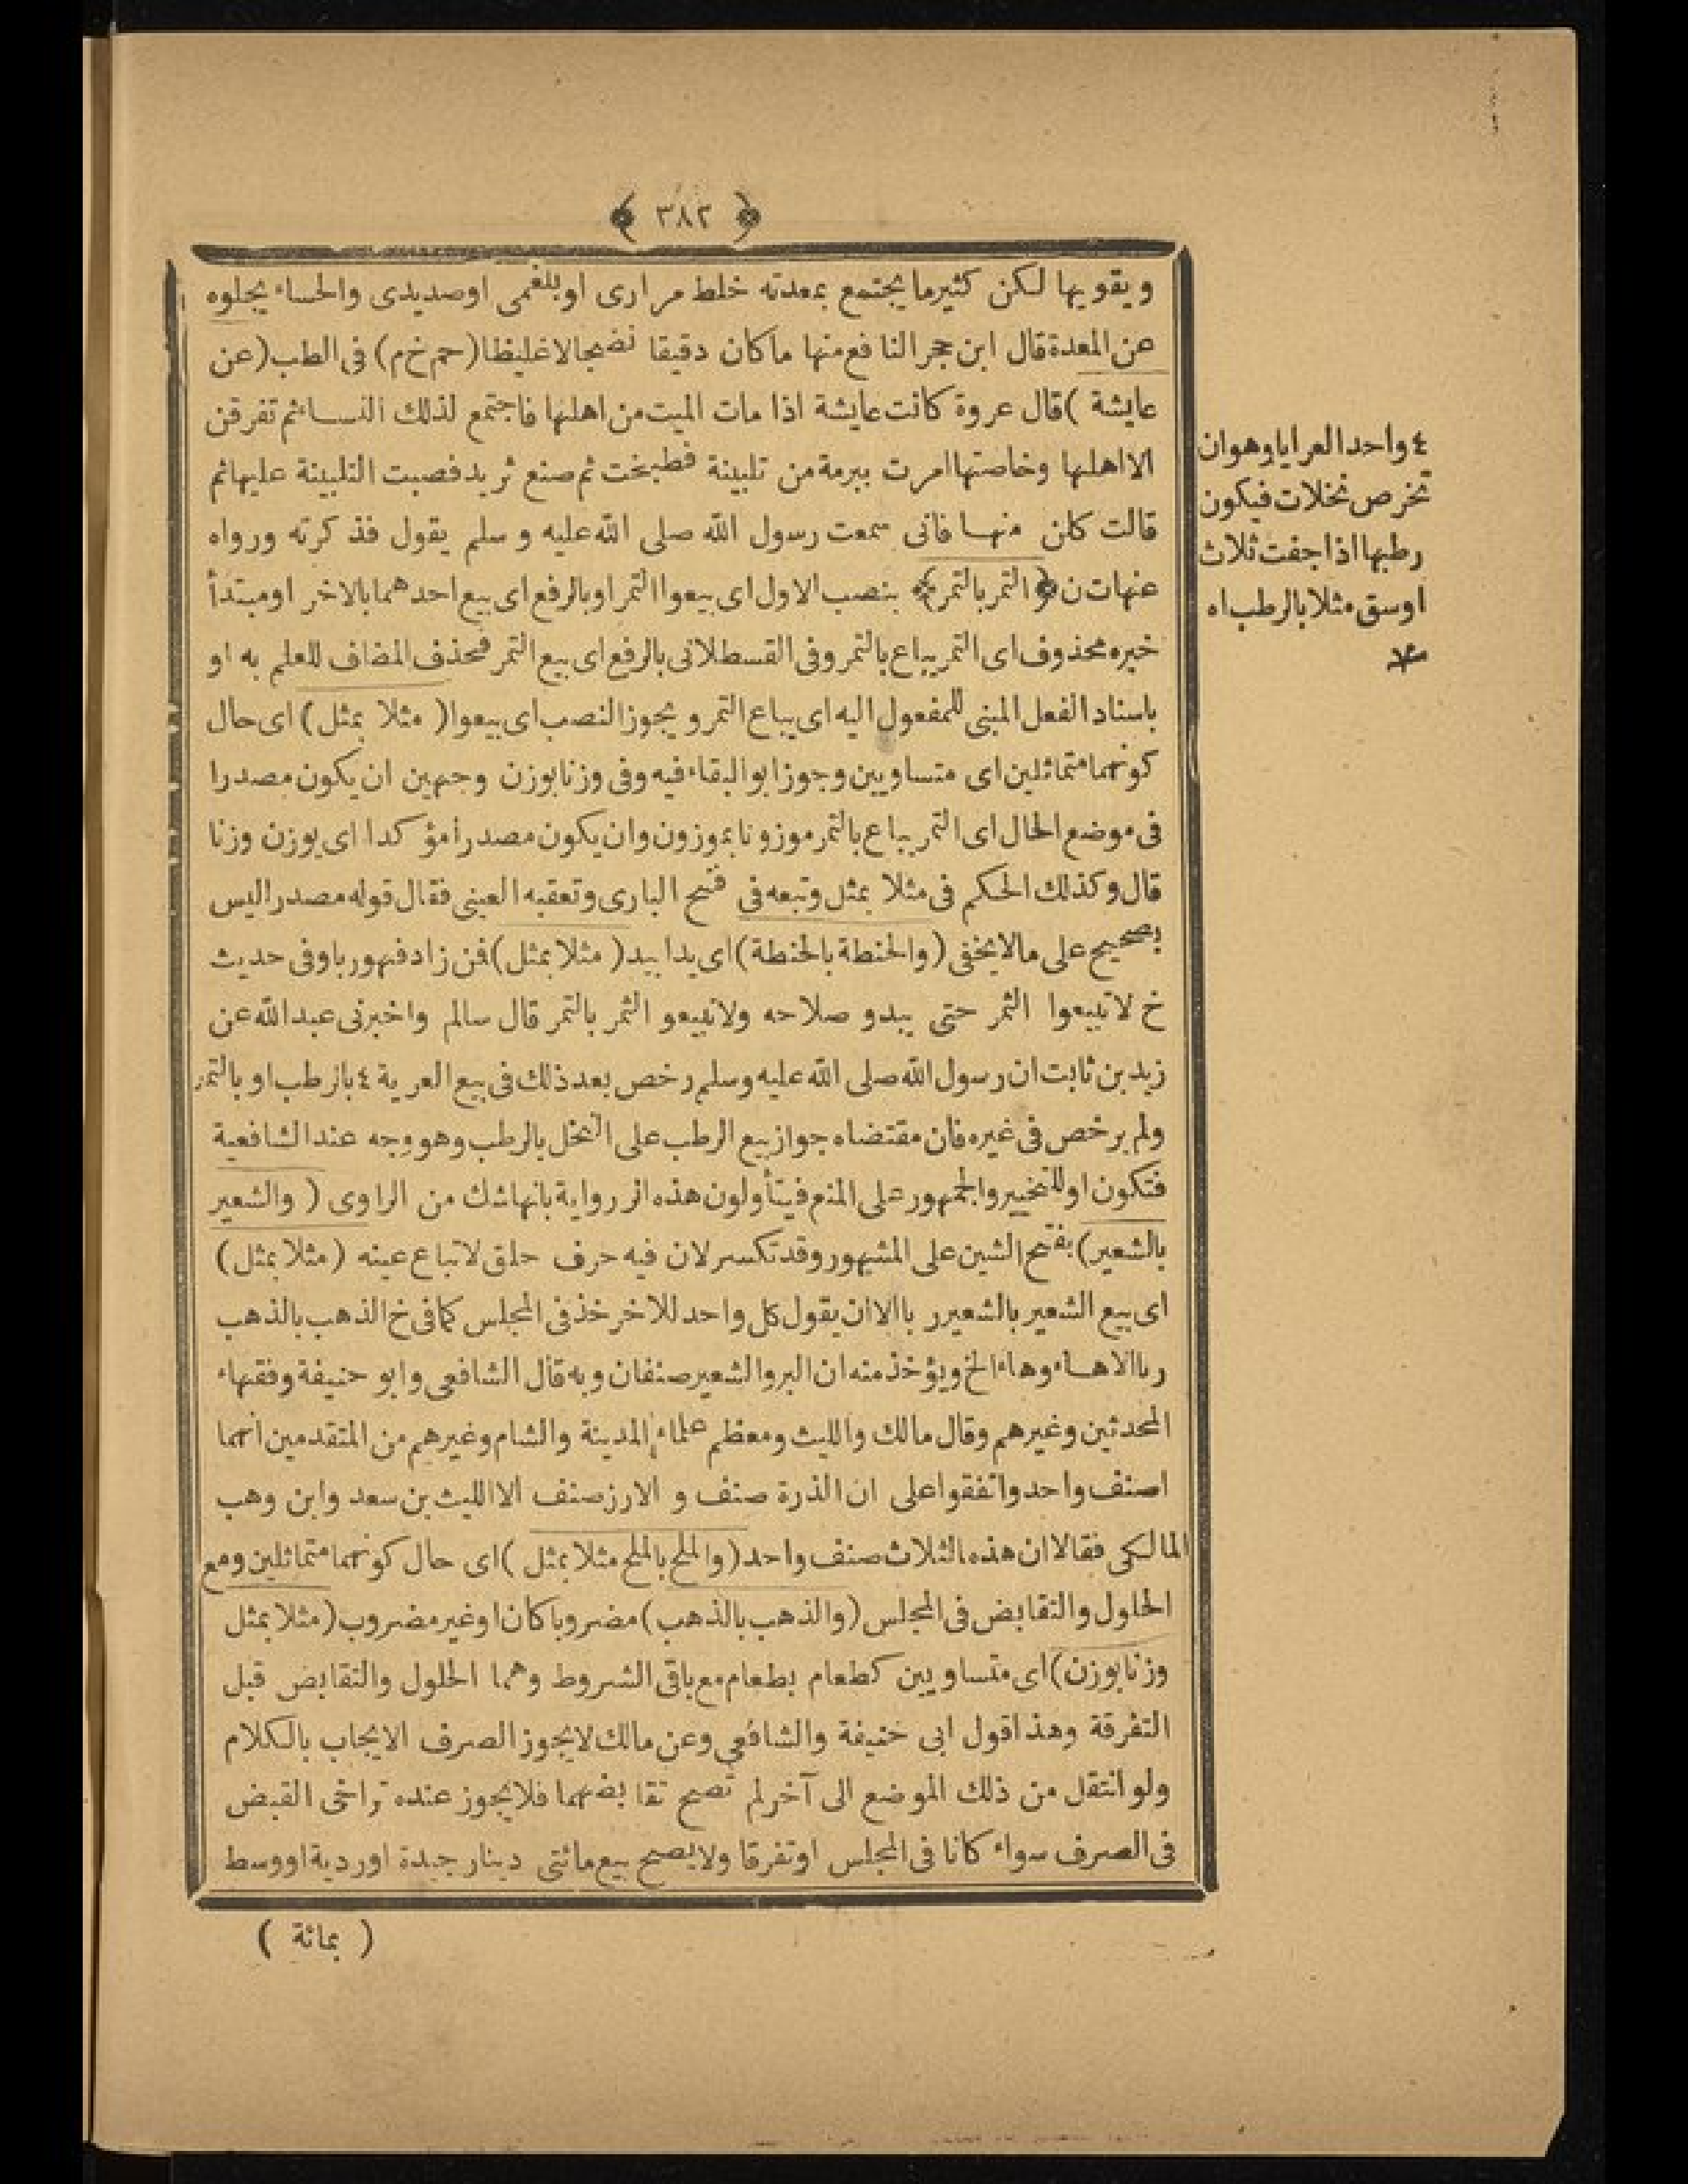 ﴿ ٣٨٢ ﴾
ويقويها لكن كثيرما يجتمع بمعدته خلط مرارى اوبلغمى اوصديدى والحساء يجلوه
عن المعدة قال ابن حجر النافع منها ماكان دقيقا نضيجالاغليظا (حم خ م) فى الطب (عن
عايشة) قال عروة كانت عايشة اذا مات الميت من اهلها فاجتمع لذلك النساء ثم تفرقن
الااهلها وخاصتها امرت ببرمة من تلبينة فطبخت ثم صنع ثريد فصبت التلبينة عليها ثم
قالت كلن منها فانى سمعت رسول الله صلى الله عليه وسلم يقول فذكرته ورواه
عنهات ن ﴿ التمر بالتمر ﴾ بنصب الاول اى بيعوا التمر اوبالرفع اى بيع احدهما بالاخر اومبتدأ
خبره محذوف اى التمر يباع بالتمر وفى القسطلانى بالرفع اى بيع التمر فحذف المضاف للعلم به او
باسناد الفعل المبنى للمفعول اليه اى يباع التمر ويجوز النصب اى بيعوا (مثلا بمثل) اى حال
كونهما متماثلين اى متساويين وجوز ابوالبقاء فيه وفى وزنا بوزن وجهين ان يكون مصدرا
فى موضع الحال اى التمر يباع بالتمر موزونا بموزون وان يكون مصدرا مؤكدا اى يوزن وزنا
قال وكذلك الحكم فى مثلا بمثل وتبعه فى فتح البارى وتعقبه العينى فقال قوله مصدر اليس
بصحيح على مالايخفى (والحنطة بالحنطة) اى يدا بيد (مثلا بمثل) فمن زاد فهو ربا وفى حديث
خ لاتبيعوا الثمر حتى يبدو صلاحه ولاتبيعو الثمر بالتمر قال سالم واخبرنى عبدالله عن
زيد بن ثابت ان رسول الله صلى الله عليه وسلم رخص بعد ذلك فى بيع العرية ٤ بالرطب او بالتمر
ولم يرخص فى غيره فان مقتضاه جواز بيع الرطب على النخل بالرطب وهو وجه عند الشافعية
فتكون او للتخيير والجمهور على المنع فيتأولون هذه الرواية بانها شك من الراوى (والشعير
بالشعير) بفتح الشين على المشهور وقد تكسر لان فيه حرف حلق لاتباع عينه (مثلا بمثل)
اى بيع الشعير بالشعير ربا الاان يقول كل واحد للاخر خذ فى المجلس كمافى خ الذهب بالذهب
ربا الاهاء وهاء الخ ويؤخذ منه ان البر والشعير صنفان وبه قال الشافعى وابو حنيفة وفقهاء
المحدثين وغيرهم وقال مالك والليث ومعظم علماء المدينة والشام وغيرهم من المتقدمين انهما
اصنف واحد واتفقوا على ان الذرة صنف و الارز صنف الاالليث بن سعد وابن وهب
المالكى فقالا ان هذه الثلاث صنف واحد (والملح بالملح مثلا بمثل) اى حال كونهما متماثلين ومع
الحلول والتقابض فى المجلس (والذهب بالذهب) مضروبا كان اوغير مضروب (مثلا بمثل
وزنا بوزن) اى متساويين كطعام بطعام مع باقى الشروط وهما الحلول والتقابض قبل
التفرقة وهذا قول ابى حنيفة والشافعى وعن مالك لايجوز الصرف الايجاب بالكلام
ولو انتقل من ذلك الموضع الى آخر لم تصح تقابضهما فلايجوز عنده تراخى القبض
فى الصرف سواء كانا فى المجلس اوتفرقا ولايصح بيع مائتى دينار جيدة اوردية اووسط
( بمائة )
٤ واحد العرايا وهو ان
تخرص نخلات فيكون
رطبها اذا جفت ثلاث
اوسق مثلا بالرطب اه